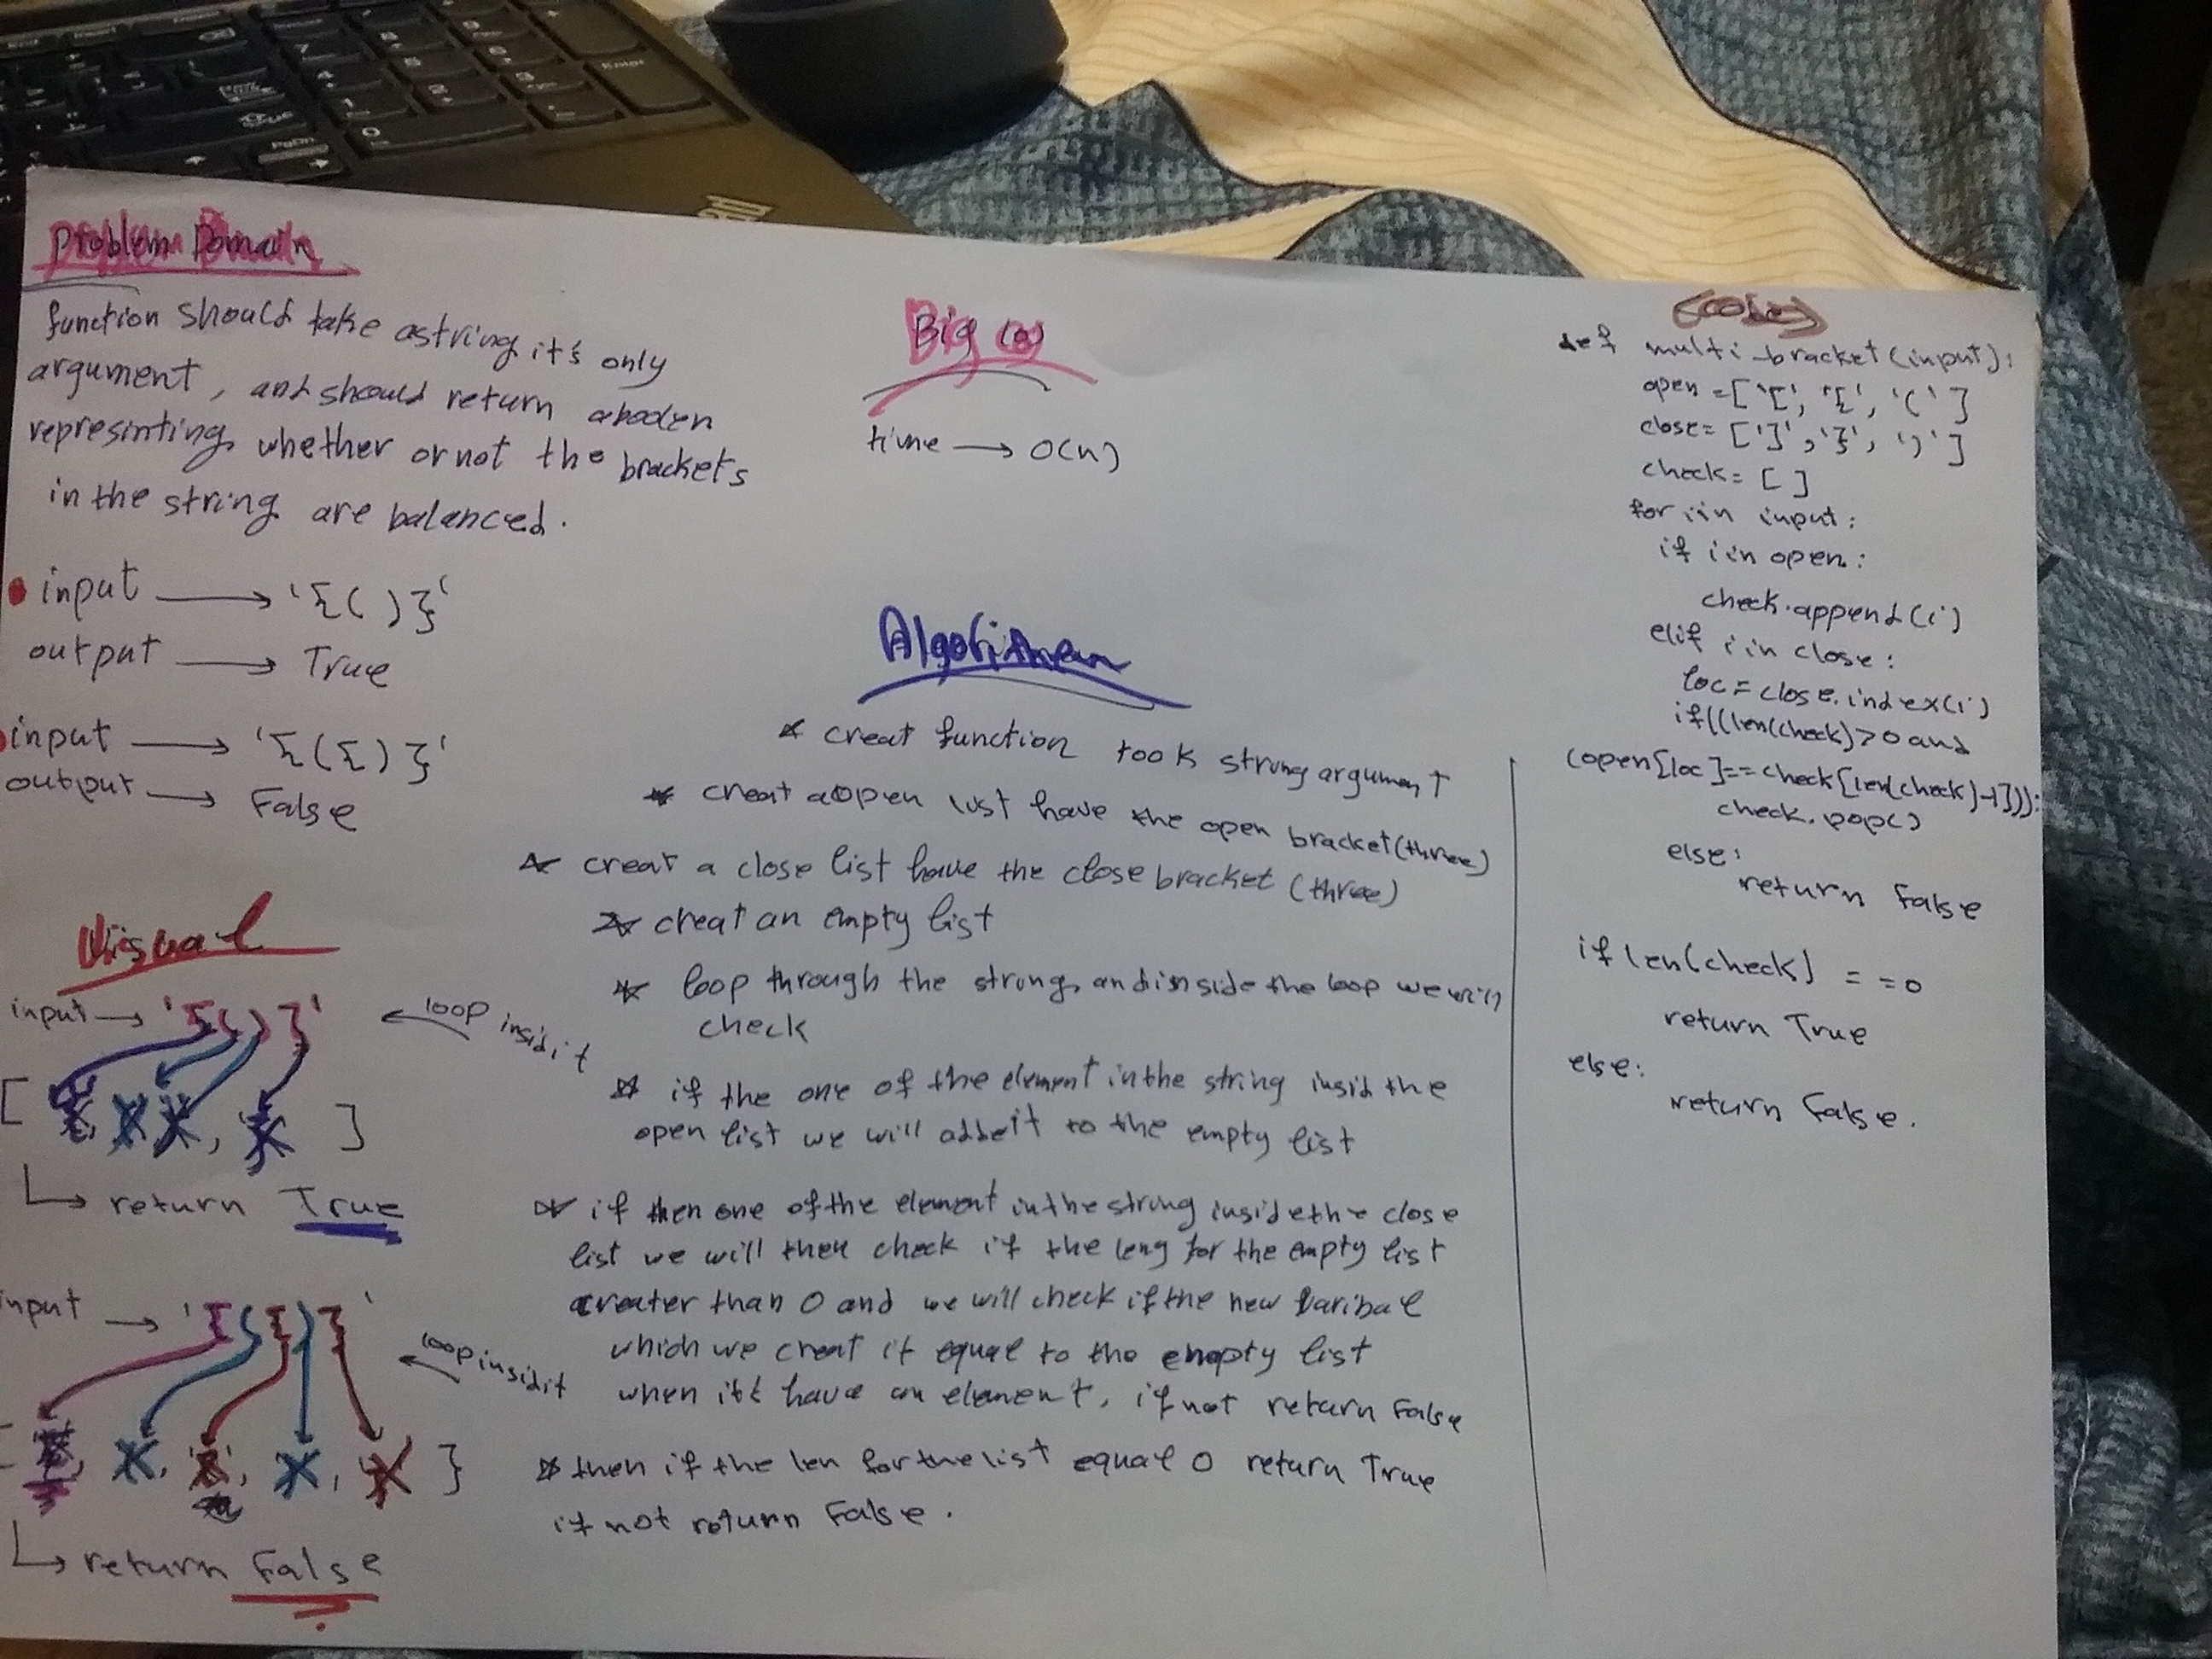 Problem Domain
function should take astring it's only
argument, and should return aboolen
represinting whether or not the brackets
in the string are balanced.
input → '{()}'
output → True
input → '{({)}'
output → False
Visual
input → '{()}'
loop insid it
[ , , ]
↳ return True
input → '{({)}'
loop insid it
↳ return False
Big (o)
time → O(n)
Algorithem
* creat function took string argument
* creat aopen list have the open bracket(three)
* creat a close list have the close bracket (three)
* creat an empty list
* loop through the string, and inside the loop we will
check
* if the one of the element in the string insid the
open list we will adde it to the empty list
* if then one of the element in the string inside the close
list we will then check if the leng for the empty list
greater than 0 and we will check if the new varibal
which we creat it equal to the empty list
when it's have an element, if not return False
* then if the len for the list equal 0 return True
if not return False.
<code>
def multi_bracket(input):
open = ['[', '{', '(' ]
close = [']', '}', ')' ]
check = [ ]
for i in input:
if i in open:
check.append(i)
elif i in close:
loc = close.index(i)
if((len(check)>0 and
(open[loc]==check[len(check)-1])):
check.pop()
else:
return False
if len(check) = = 0
return True
else:
return False.
Enter
PgDn